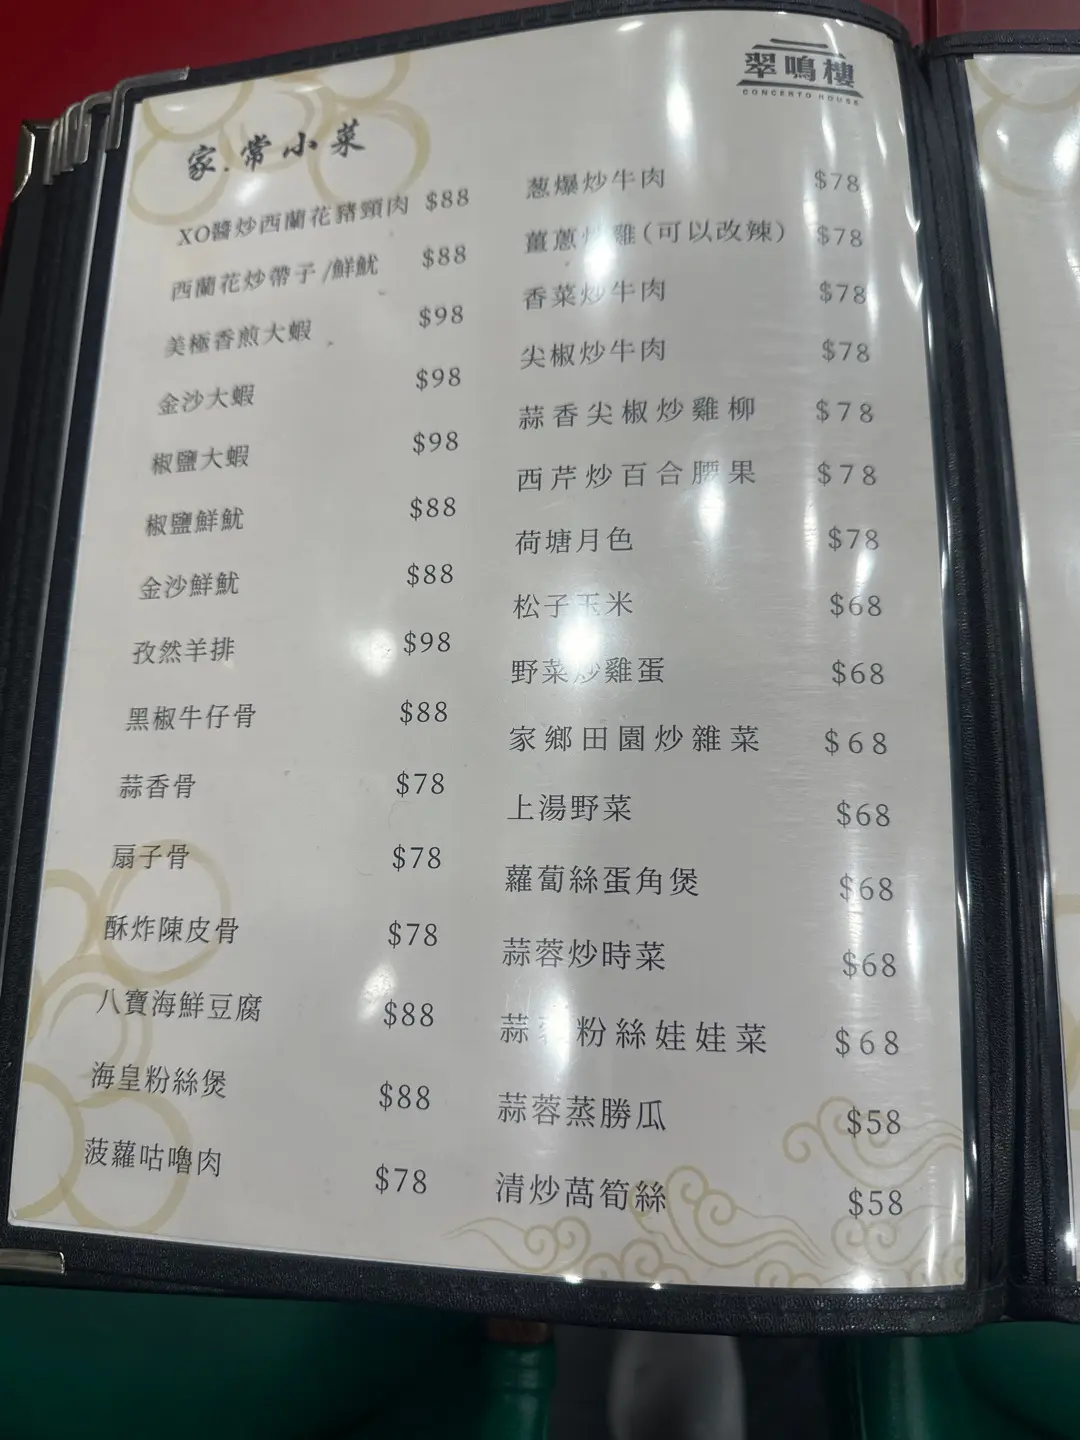 翠鳴樓
CONCERTO HOUSE
家.常小菜
XO醬炒西蘭花豬頸肉 $88
西蘭花炒帶子/鮮魷 $88
美極香煎大蝦 $98
金沙大蝦 $98
椒鹽大蝦 $98
椒鹽鮮魷 $88
金沙鮮魷 $88
孜然羊排 $98
黑椒牛仔骨 $88
蒜香骨 $78
扇子骨 $78
酥炸陳皮骨 $78
八寶海鮮豆腐 $88
海皇粉絲煲 $88
菠蘿咕嚕肉 $78
葱爆炒牛肉 $78
薑蔥炒雞(可以改辣) $78
香菜炒牛肉 $78
尖椒炒牛肉 $78
蒜香尖椒炒雞柳 $78
西芹炒百合腰果 $78
荷塘月色 $78
松子玉米 $68
野菜炒雞蛋 $68
家鄉田園炒雜菜 $68
上湯野菜 $68
蘿蔔絲蛋角煲 $68
蒜蓉炒時菜 $68
蒜蓉粉絲娃娃菜 $68
蒜蓉蒸勝瓜 $58
清炒萵筍絲 $58